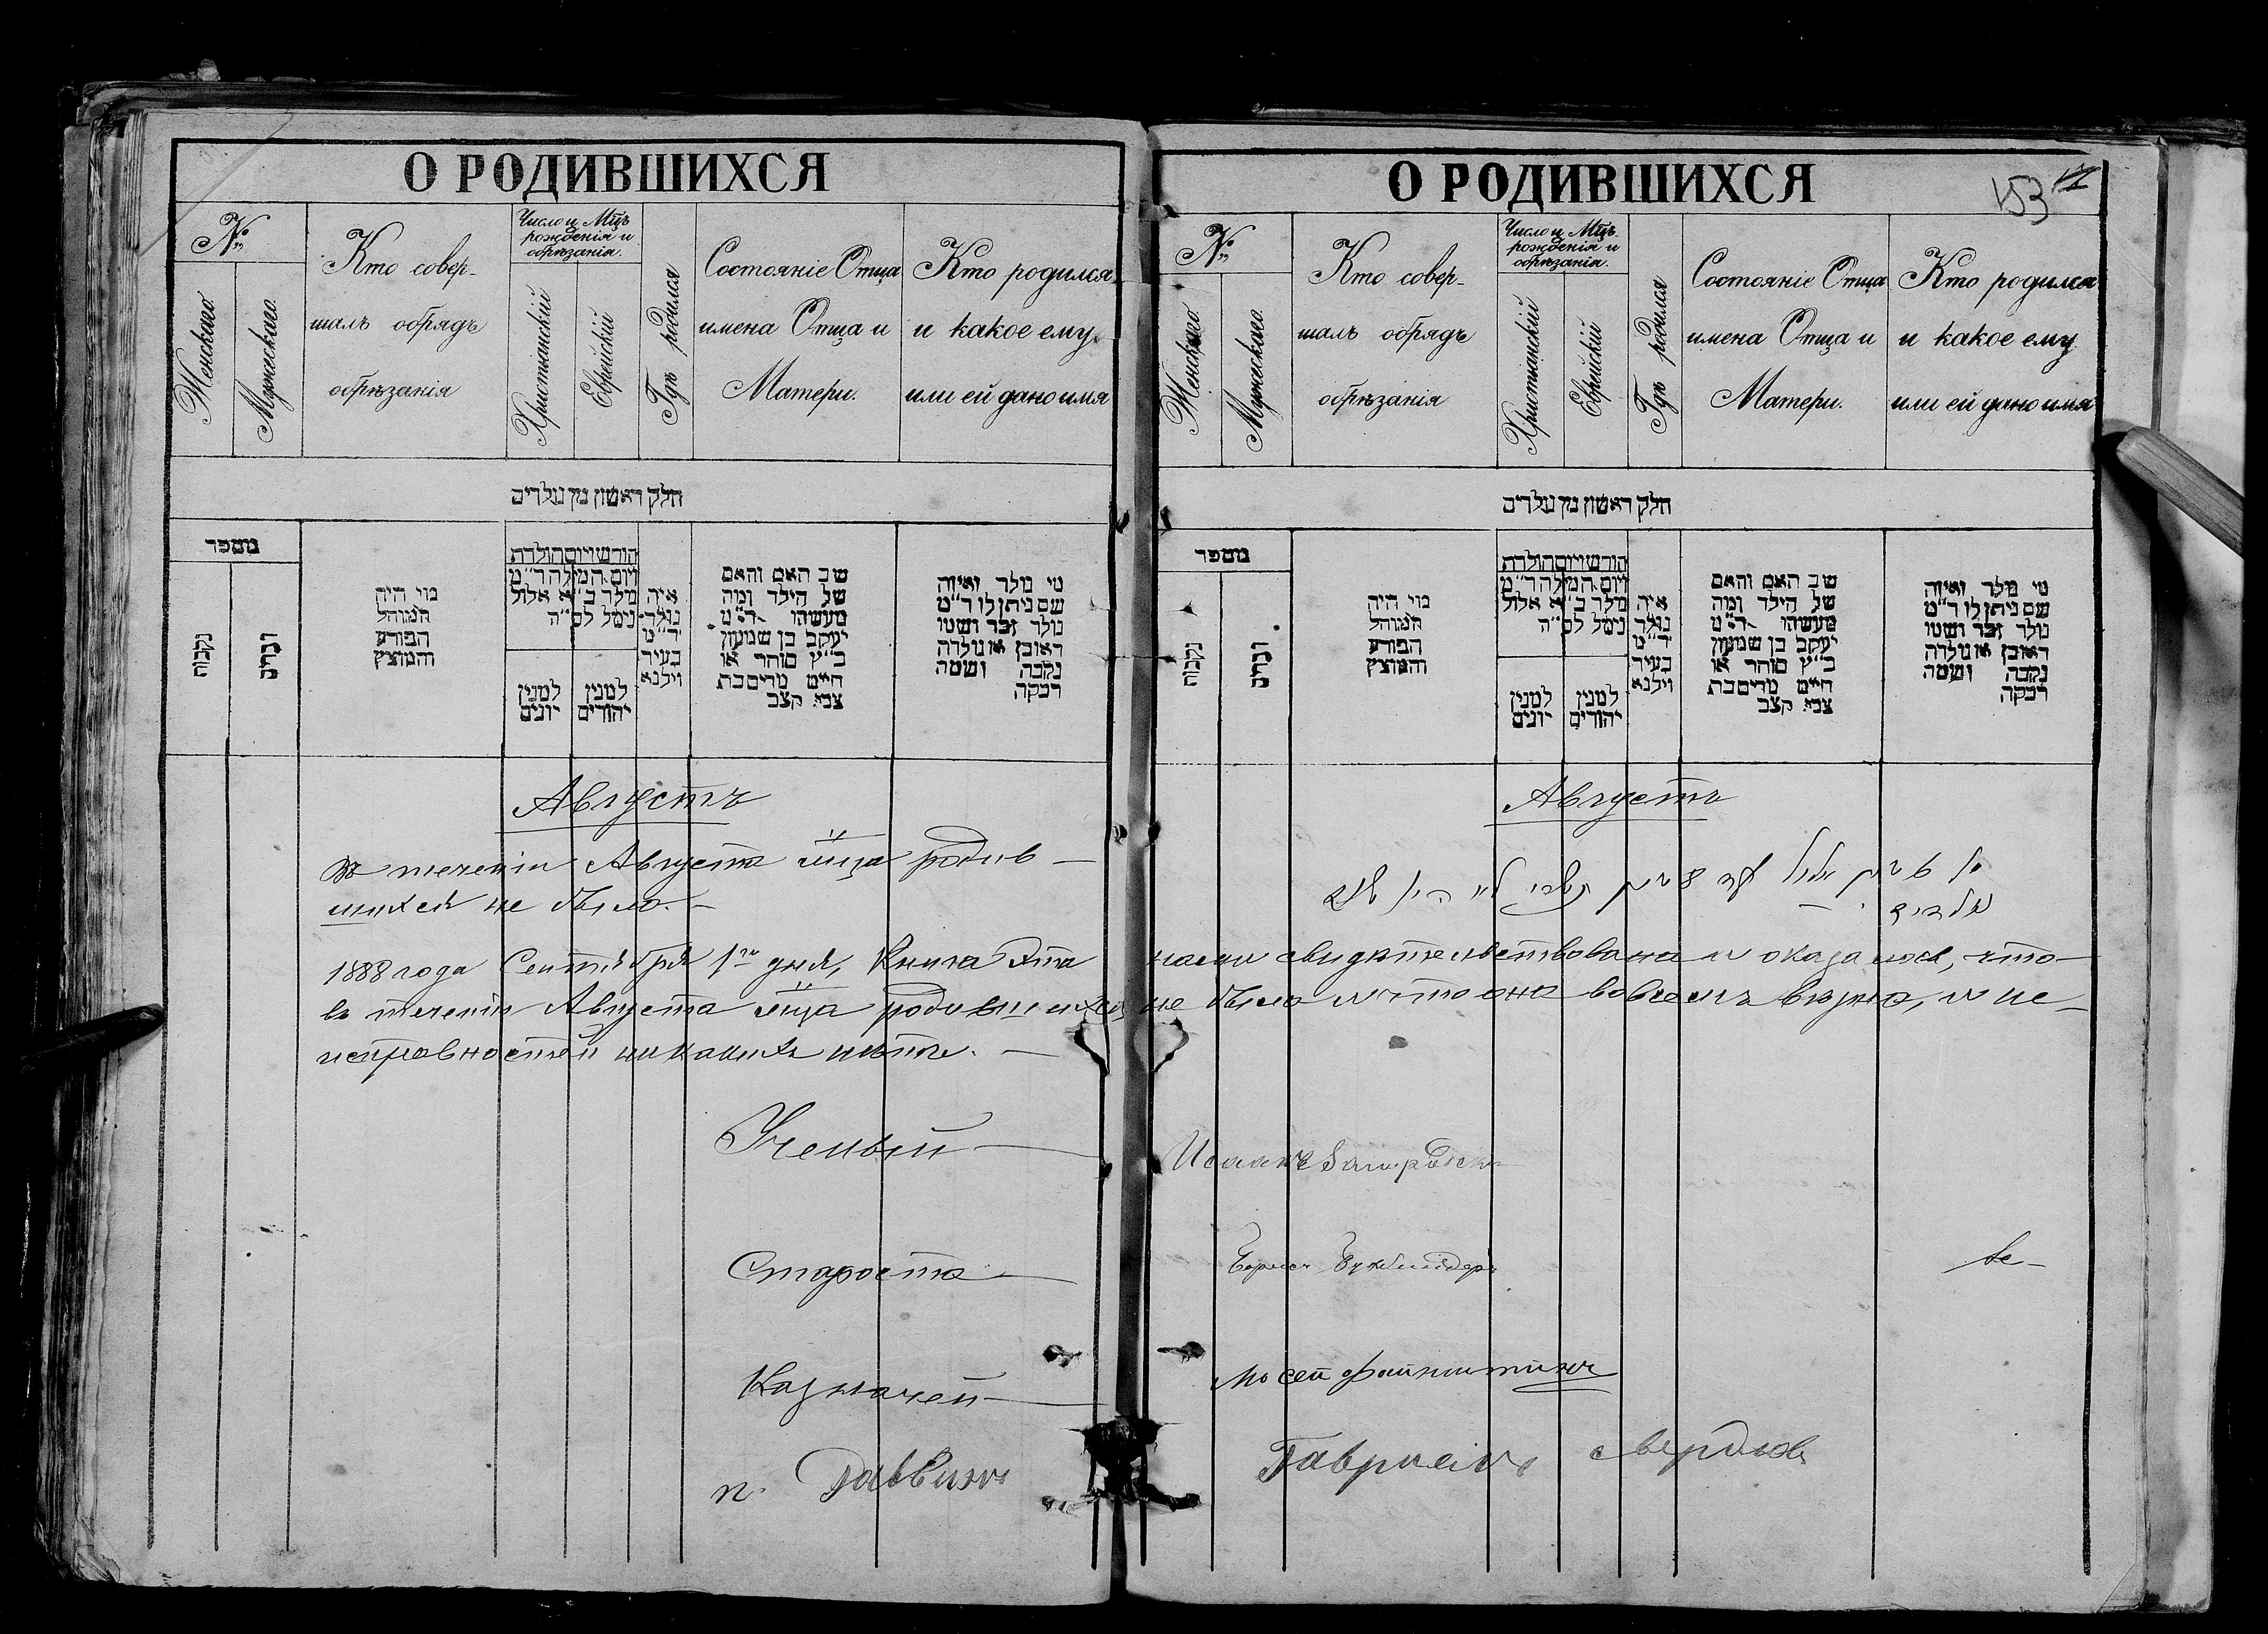 О РОДИВШИХСЯ
№
Женскаго.
Мужескаго.
Кто совер-
шалъ обрядъ
обрѣзанія
Число и Мцъ
рожденія и
обрѣзанія.
Христіанскій
Еврейскій
Гдѣ родился
Состояніе Отца
имена Отца и
Матери.
Кто родился
и какое ему
или ей дано имя
חלק ראשון מן נולדים
מספר
נקבות
זכרים
מי היה
המוהל
הפורע
והמוצץ
חודש ויום הולדת
ויום המילה ר״מ
נולד כ״א אלול
נימל לס״ה
למנין
יונים
למנין
יהודים
איה
נולד
ד״מ
בעיר
וילנא
שב האם והאם
של הילד ומה
מעשהו ד״מ
יעקב בן שמעון
כ״ץ סוחר או
חיים מרים בת
צבי קצב
מי נולד ואיזה
שם ניתן לו ד״מ
נולד זכר ושמו
ראובן או נולדה
נקבה ושמה
רבקה
Августъ
в теченіи Августа мца родив-
шихся не было.-
1888 года Сентября 1го дня, Книга эта
въ теченіи Августа мца родившихся
исправностей никакихъ нѣтъ. -
Ученый
Староста
Казначей
п. Раввинъ
О РОДИВШИХСЯ
153
№
Женскаго.
Мужескаго.
Кто совер-
шалъ обрядъ
обрѣзанія
Число и Мцъ
рожденія и
обрѣзанія.
Христіанскій
Еврейскій
Гдѣ родился
Состояніе Отца
имена Отца и
Матери.
Кто родился
и какое ему
или ей дано имя
חלק ראשון מן נולדים
מספר
נקבות
זכרים
מי היה
המוהל
הפורע
והמוצץ
חודש ויום הולדת
ויום המילה ר״מ
נולד כ״א אלול
נימל לס״ה
למנין
יונים
למנין
יהודים
איה
נולד
ד״מ
בעיר
וילנא
שב האם והאם
של הילד ומה
מעשהו ד״מ
יעקב בן שמעון
כ״ץ סוחר או
חיים מרים בת
צבי קצב
מי נולד ואיזה
שם ניתן לו ד״מ
נולד זכר ושמו
ראובן או נולדה
נקבה ושמה
רבקה
Августъ
נולדים
нами свидѣтельствована и оказалось, что
не было и что она вовсемъ вѣрна, и не-
Исаакъ
Борисъ
Мосей Файнштейнъ
Гавріилъ Свердловъ